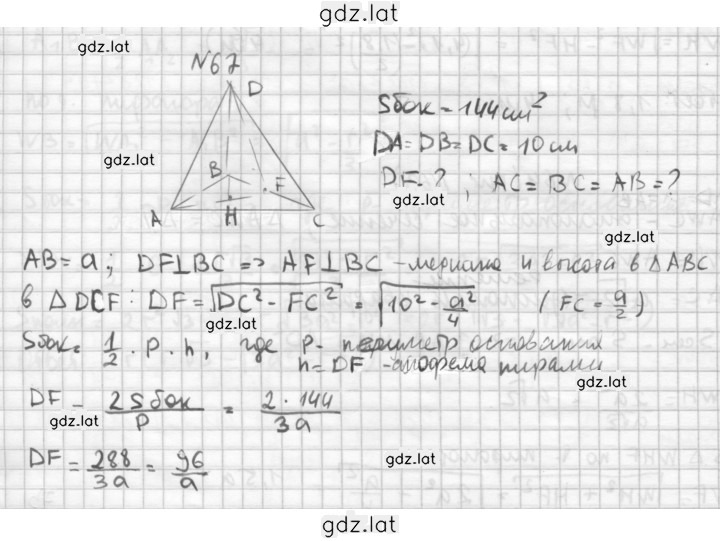 gdz.lat
gdz.lat
N67
D
Sбок = 144 см²
gdz.lat
DA = DB = DC = 10 см
B
F
DF - ? ; AC = BC = AB = ?
gdz.lat
A
H
C
gdz.lat
AB = a ; DF⊥BC => HF⊥BC - медиана и высота в △ABC
в △ DCF : DF = √DC² - FC² = √10² - a²/4 ( FC = a/2 )
gdz.lat
Sбок = 1/2 · P · h , где P - периметр основания
h = DF - апофема пирами
gdz.lat
DF - 2Sбок/P = 2 · 144/3a
gdz.lat
DF = 288/3a = 96/a
gdz.lat
gdz.lat